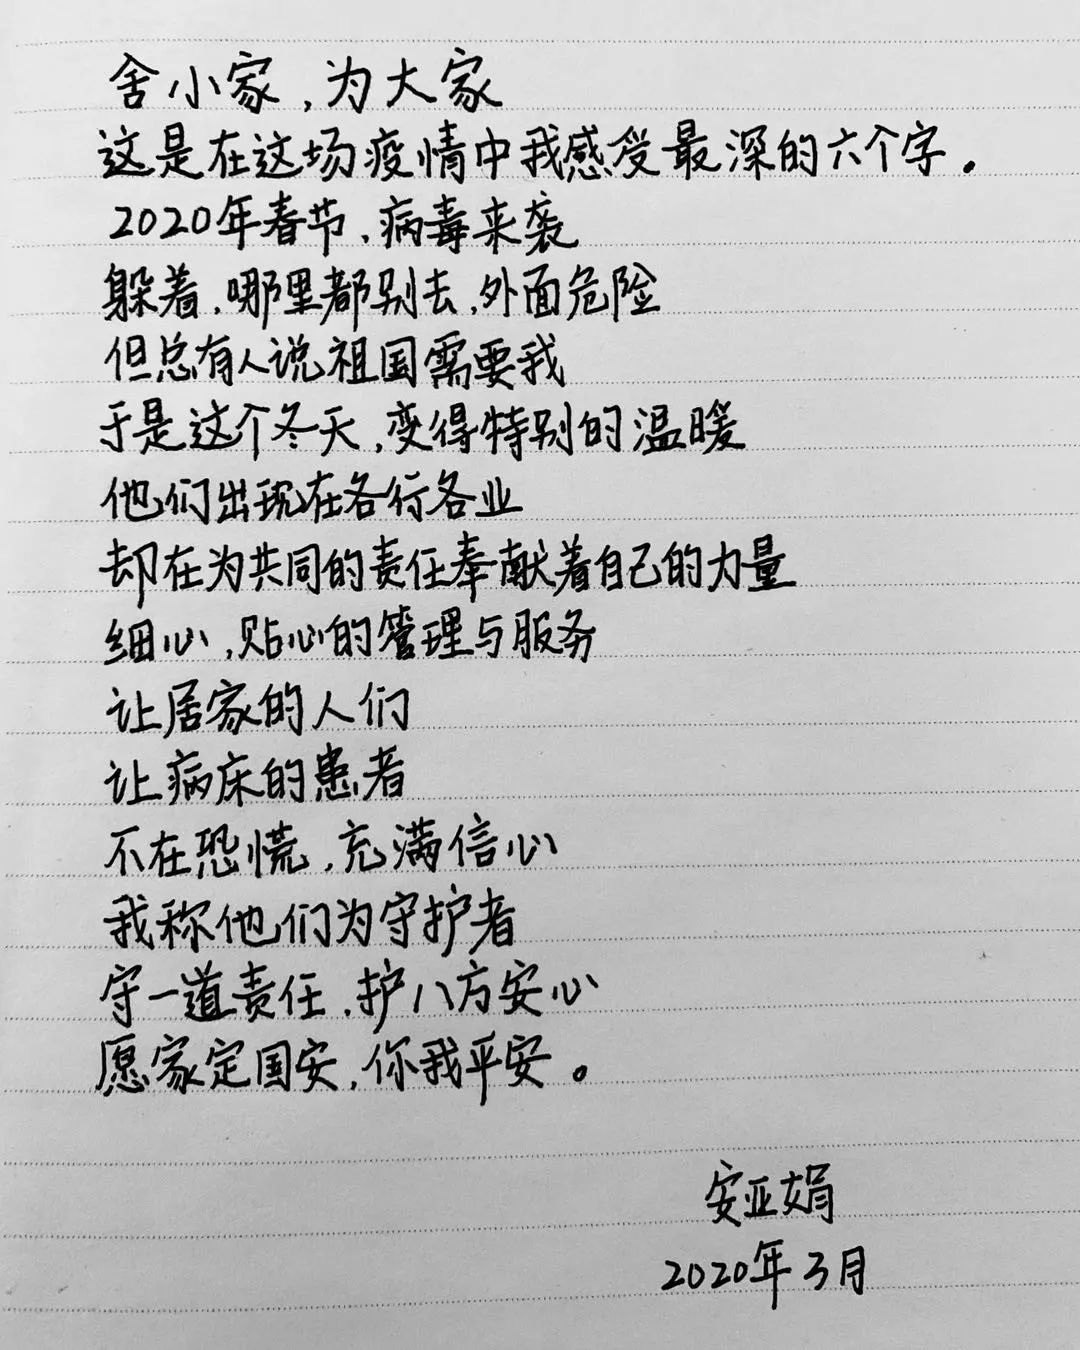 舍小家,为大家
这是在这场疫情中我感受最深的六个字。
2020年春节,病毒来袭
躲着,哪里都别去,外面危险
但总有人说祖国需要我
于是这个冬天,变得特别的温暖
他们出现在各行各业
却在为共同的责任奉献着自己的力量
细心,贴心的管理与服务
让居家的人们
让病床的患者
不在恐慌,充满信心
我称他们为守护者
守一道责任,护八方安心
愿家定国安,你我平安。
安亚娟
2020年3月